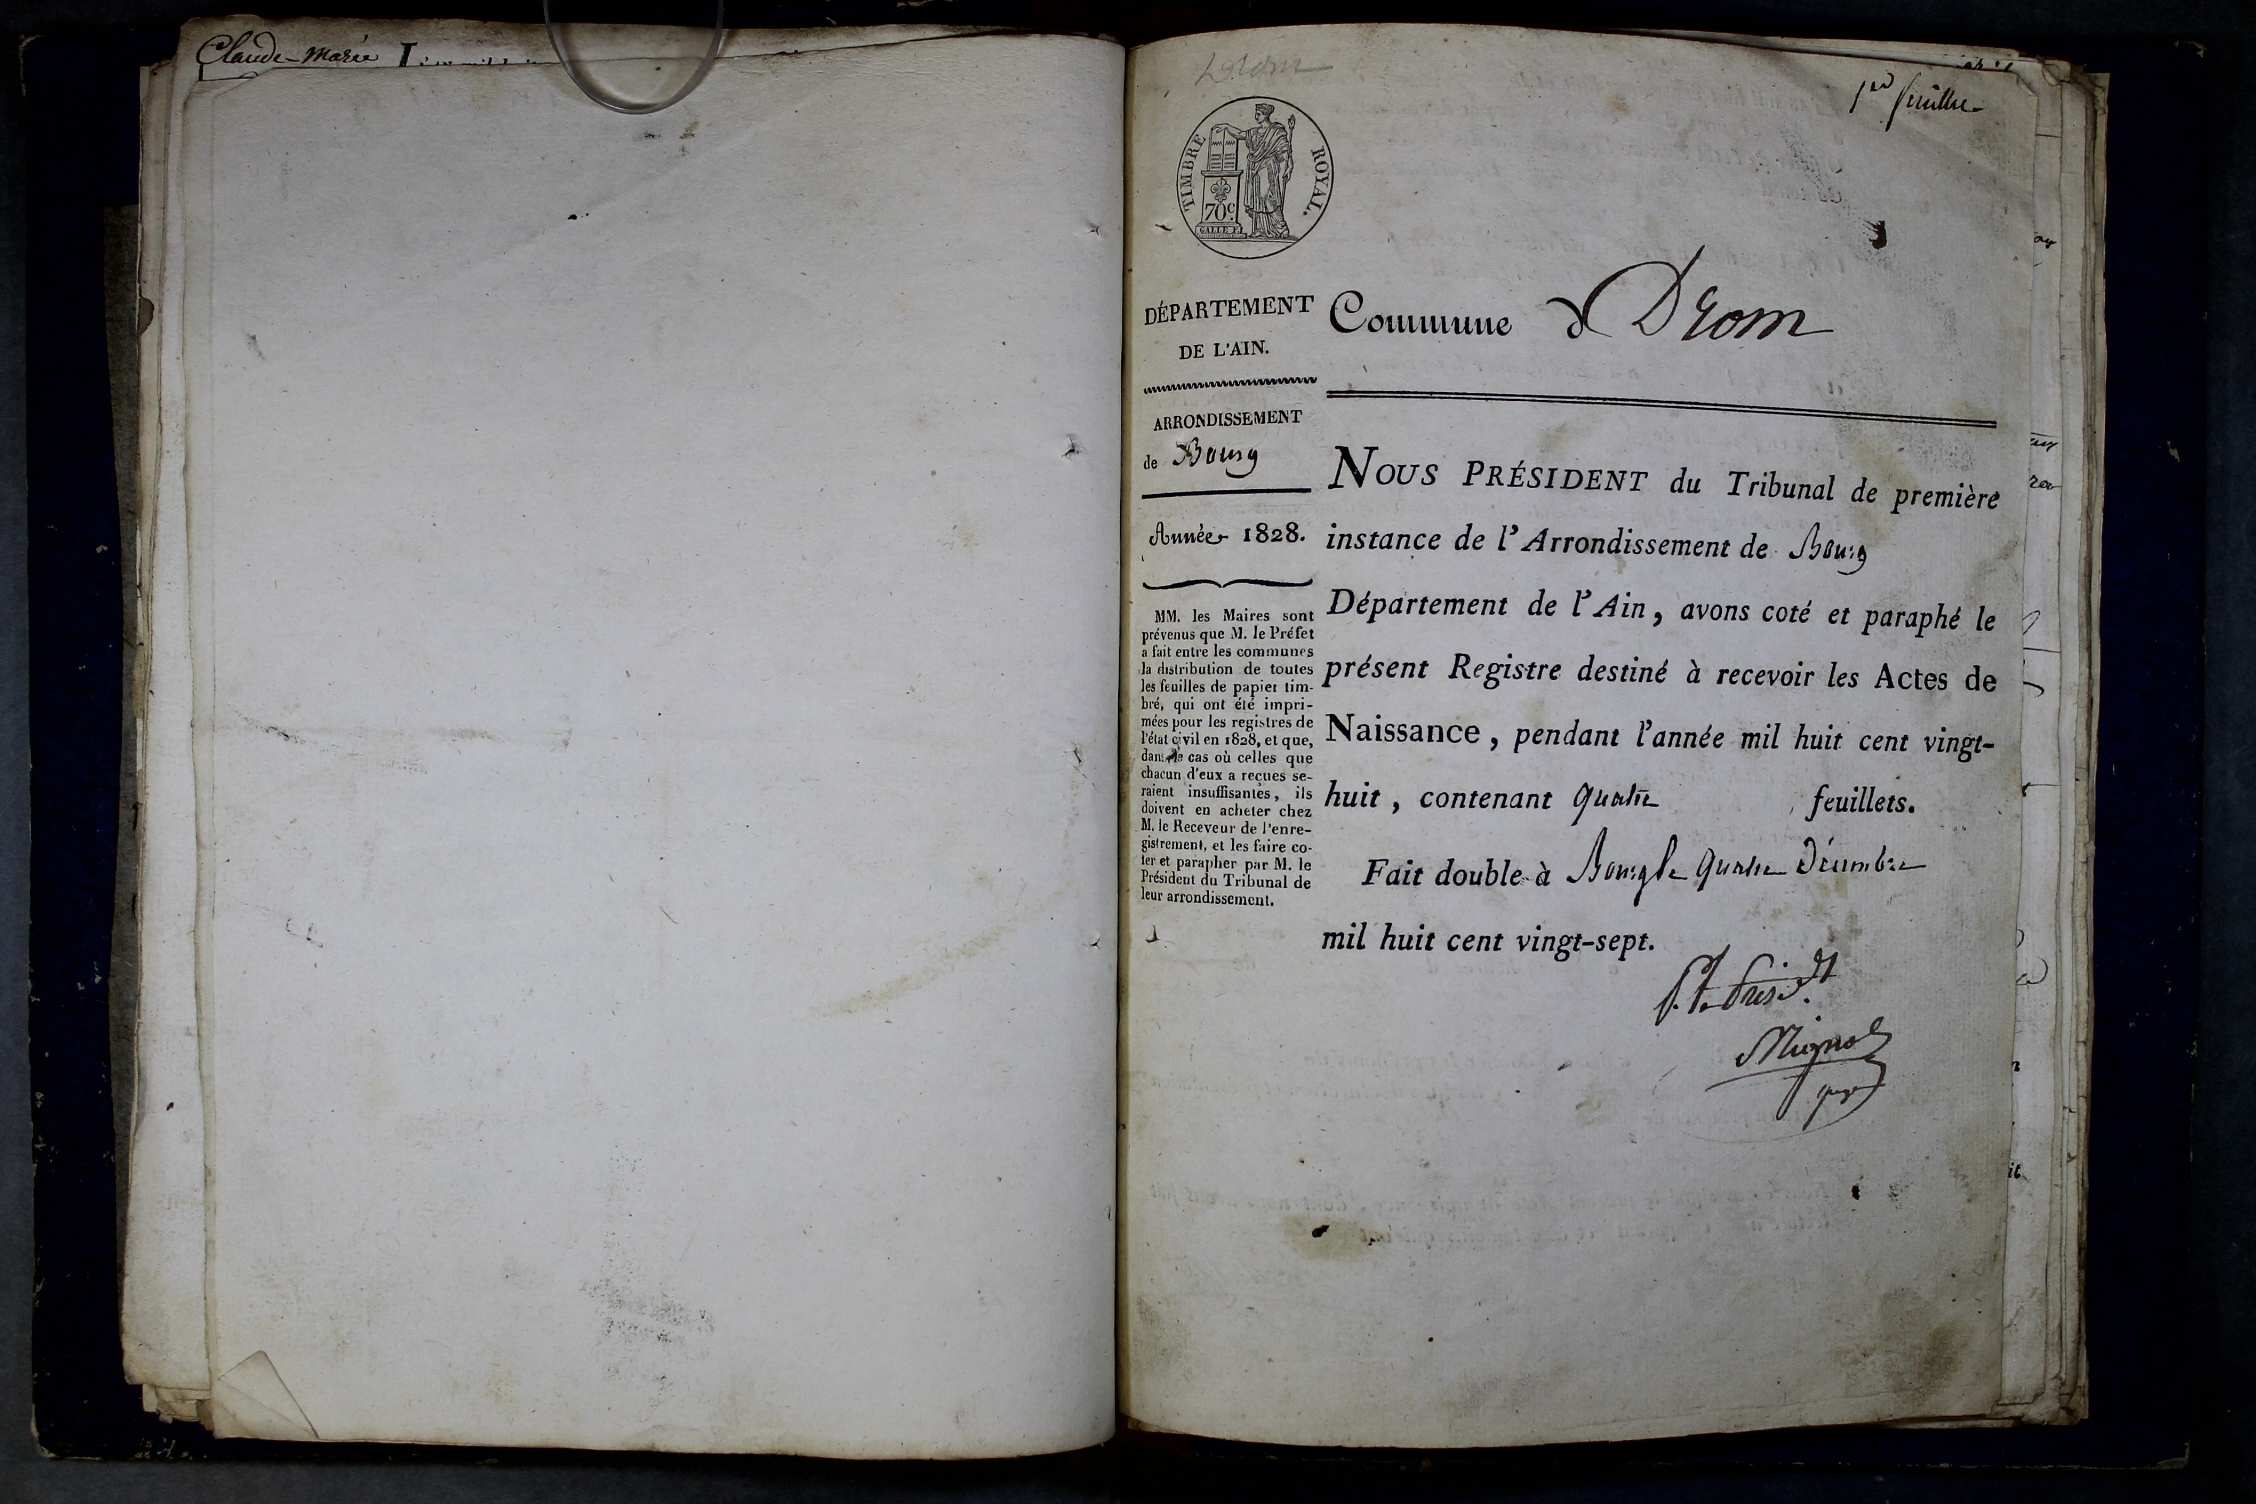 Claude-Marie
Drom
1er feuillet
TIMBRE ROYAL.
70c
GALLE F.
DÉPARTEMENT
DE L'AIN.
ARRONDISSEMENT
de Bourg
Année 1828.
MM. les Maires sont
prévenus que M. le Préfet
a fait entre les communes
la distribution de toutes
les feuilles de papier tim-
bré, qui ont été impri-
mées pour les registres de
l'état civil en 1828, et que,
dans le cas où celles que
chacun d'eux a reçues se-
raient insuffisantes, ils
doivent en acheter chez
M. le Receveur de l'enre-
gistrement, et les faire co-
ter et parapher par M. le
Président du Tribunal de
leur arrondissement.
Commune d Drom
NOUS PRÉSIDENT du Tribunal de première
instance de l'Arrondissement de Bourg
Département de l'Ain, avons coté et paraphé le
présent Registre destiné à recevoir les Actes de
Naissance, pendant l'année mil huit cent vingt-
huit, contenant quatre feuillets.
Fait double à Bourg le quatre Décembre
mil huit cent vingt-sept.
P. le Présidt.
Mignot